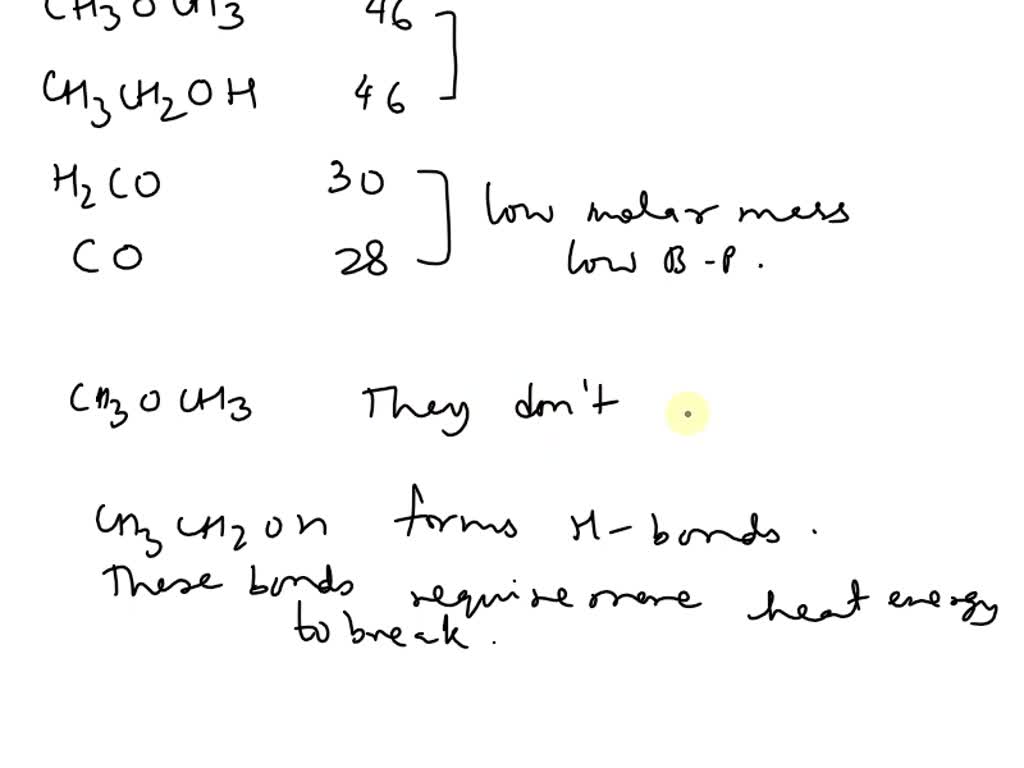 CH3OCH3 46
CH3CH2OH 46
H2CO 30
CO 28
low molar mess
low B-P.
CH3OCH3 They don't
CH3CH2OH forms H-bonds.
These bonds require more heat energy
to break.